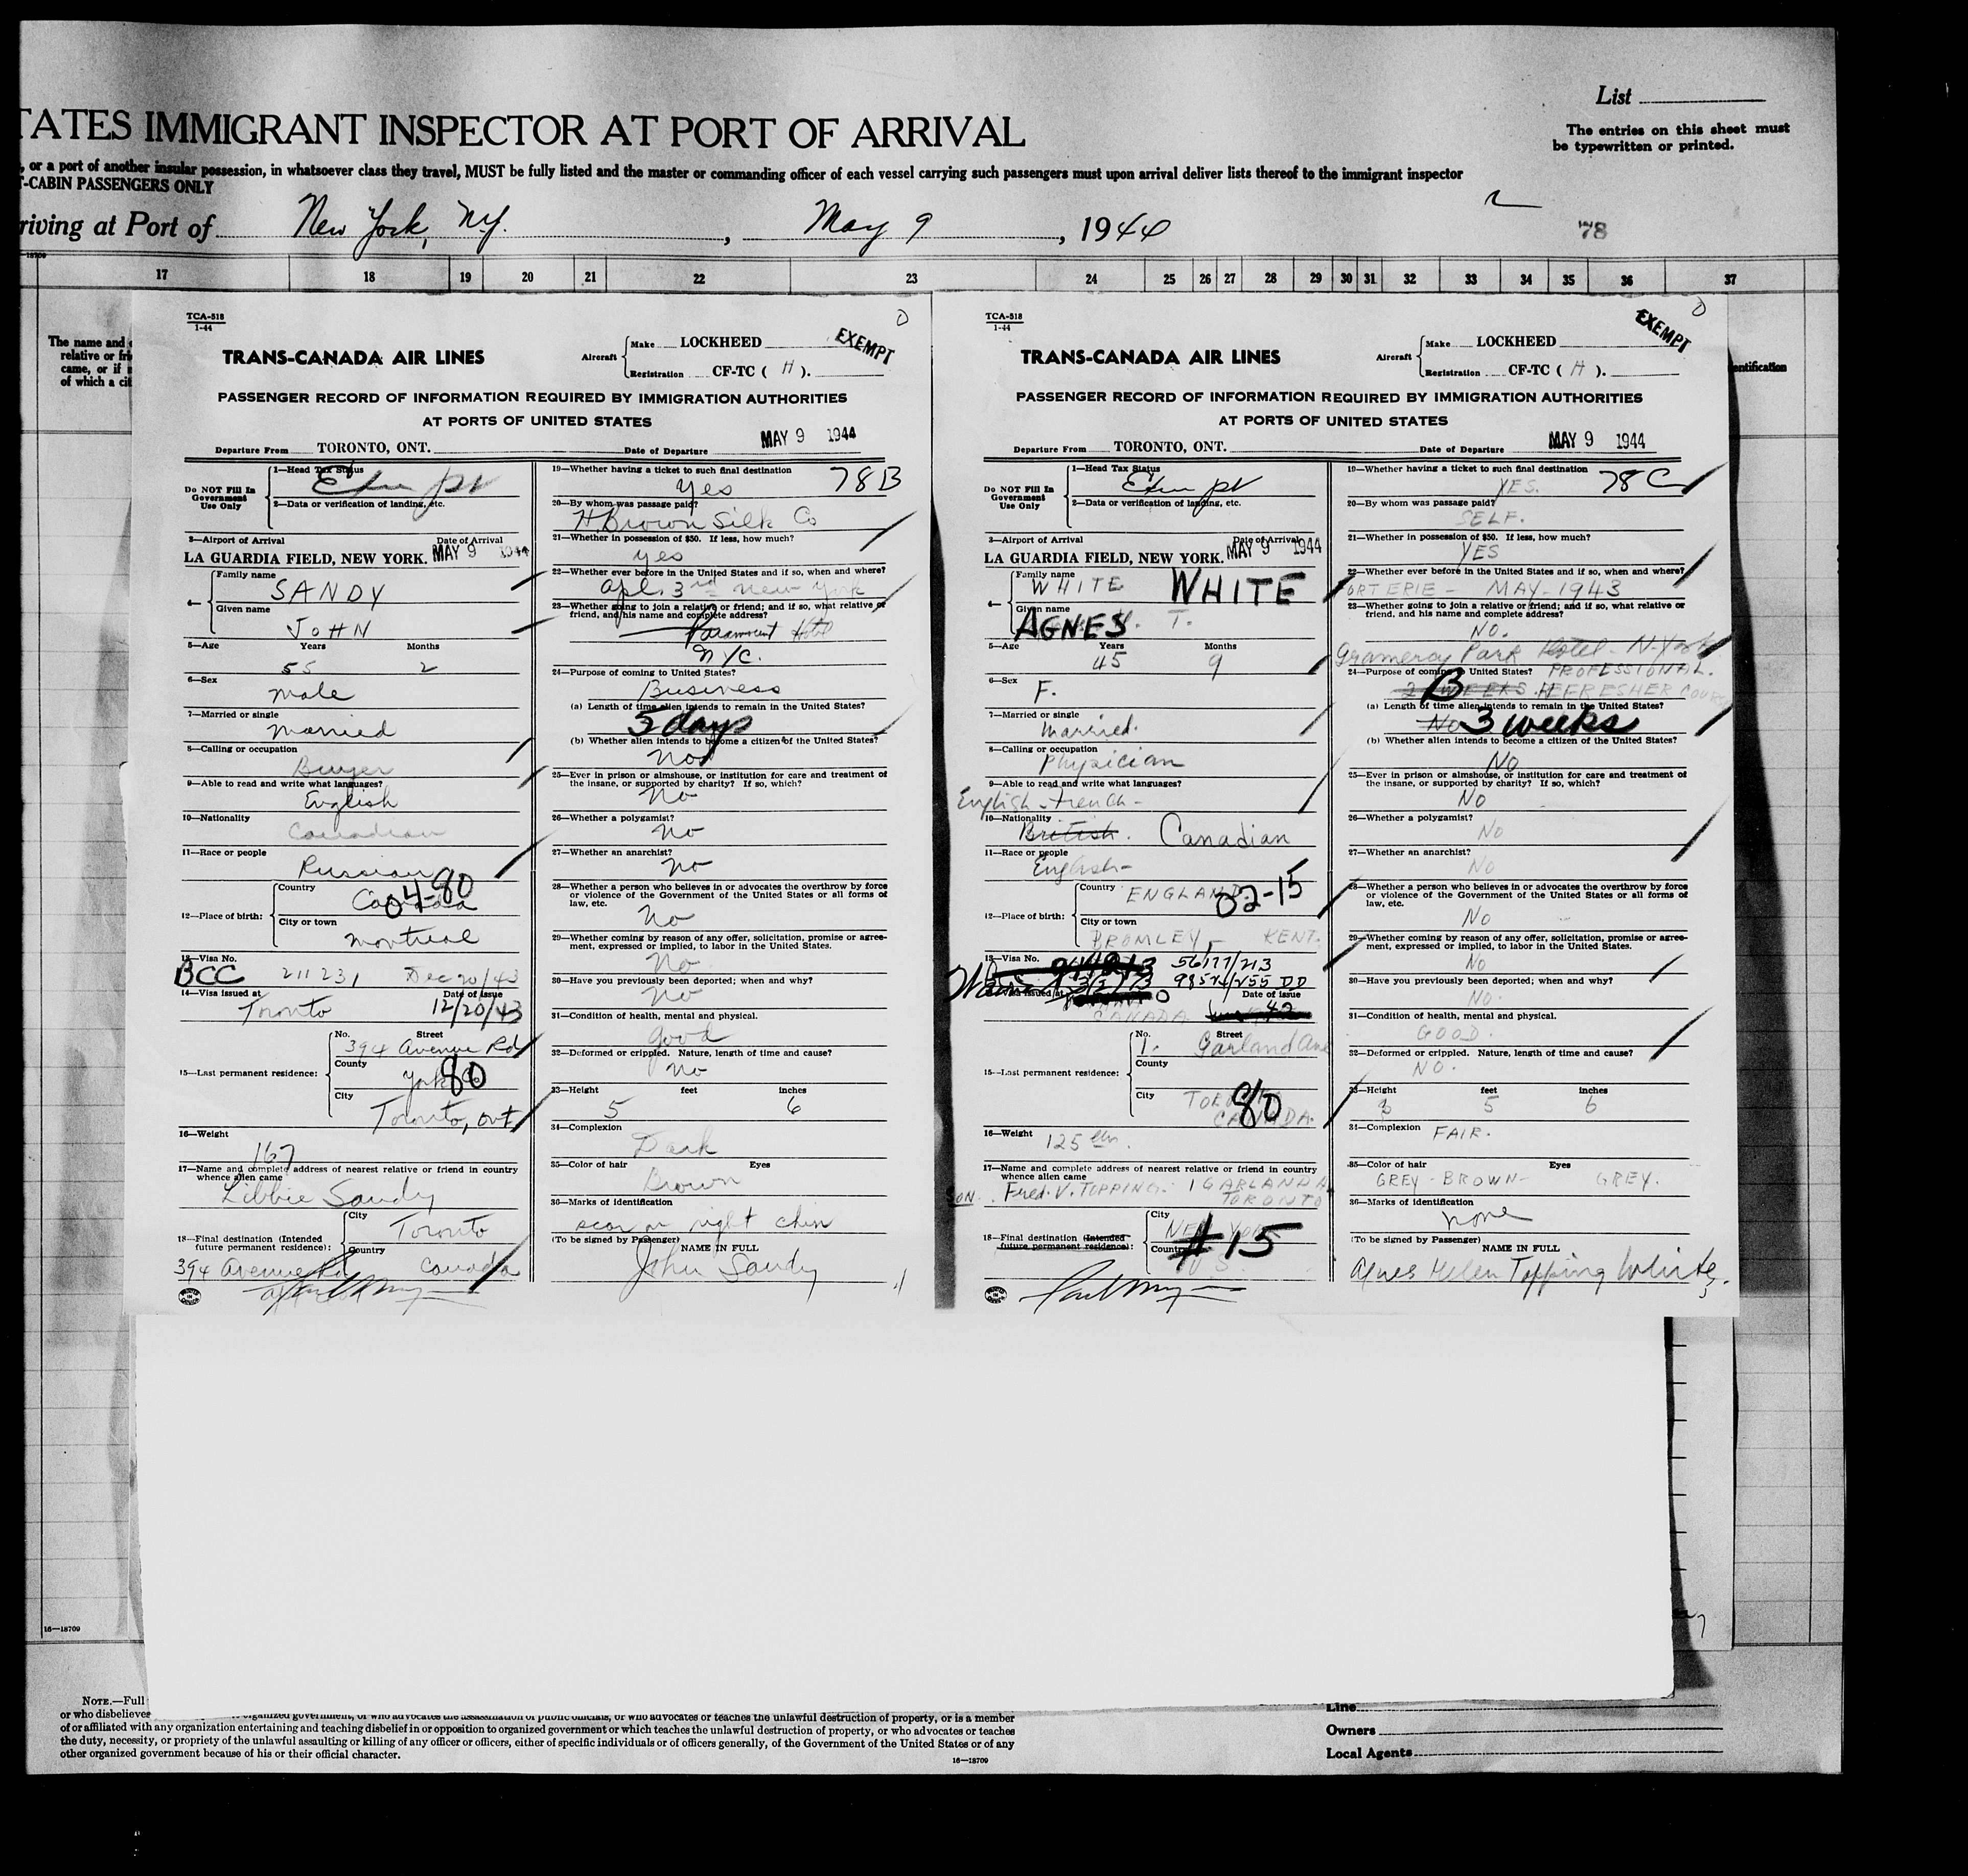 List
TATES IMMIGRANT INSPECTOR AT PORT OF ARRIVAL
The entries on this sheet must
be typewritten or printed.
, or a port of another insular possession, in whatsoever class they travel, MUST be fully listed and the master or commanding officer of each vessel carrying such passengers must upon arrival deliver lists thereof to the immigrant inspector
T-CABIN PASSENGERS ONLY
riving at Port of New York, N.Y. , May 9 , 1944
78
17 18 19 20 21 22 23 24 25 26 27 28 29 30 31 32 33 34 35 36 37
The name and
relative or fri
came, or if
of which a cit
TCA-518
1-44
EXEMPT
TRANS-CANADA AIR LINES
Aircraft Make LOCKHEED
Registration CF-TC ( H ).
PASSENGER RECORD OF INFORMATION REQUIRED BY IMMIGRATION AUTHORITIES
AT PORTS OF UNITED STATES
Departure From TORONTO, ONT. Date of Departure MAY 9 1944
Do NOT Fill In
Government
Use Only
1—Head Tax Status
2—Data or verification of landing, etc.
3—Airport of Arrival Date of Arrival
LA GUARDIA FIELD, NEW YORK. MAY 9 1944
4— Family name
SANDY
Given name
JOHN
5—Age Years Months
55 2
6—Sex
male
7—Married or single
Married
8—Calling or occupation
Buyer
9—Able to read and write what languages?
English
10—Nationality
Canadian
11—Race or people
Russian
12—Place of birth: Country
Canada 04-80
City or town
Montreal
13—Visa No.
BCC 211231 Dec 20/43
14—Visa issued at Date of Issue
Toronto 12/20/43
15—Last permanent residence: No. Street
394 Avenue Rd
County
York 80
City
Toronto, Ont
16—Weight
167
17—Name and complete address of nearest relative or friend in country
whence alien came
Libbie Sandy
18—Final destination (Intended
future permanent residence): City
Toronto
Country
394 Avenue Rd Canada
19—Whether having a ticket to such final destination
Yes 78B
20—By whom was passage paid?
H. Brown Silk Co
21—Whether in possession of $50. If less, how much?
yes
22—Whether ever before in the United States and if so, when and where?
Apl. 3rd New York
23—Whether going to join a relative or friend; and if so, what relative or
friend, and his name and complete address?
Paramount Hotel
NYC.
24—Purpose of coming to United States?
Business
(a) Length of time alien intends to remain in the United States?
5 days
(b) Whether alien intends to become a citizen of the United States?
No
25—Ever in prison or almshouse, or institution for care and treatment of
the insane, or supported by charity? If so, which?
No
26—Whether a polygamist?
No
27—Whether an anarchist?
No
28—Whether a person who believes in or advocates the overthrow by force
or violence of the Government of the United States or all forms of
law, etc.
No
29—Whether coming by reason of any offer, solicitation, promise or agree-
ment, expressed or implied, to labor in the United States.
No
30—Have you previously been deported; when and why?
No
31—Condition of health, mental and physical.
good
32—Deformed or crippled. Nature, length of time and cause?
No
33—Height feet inches
5 6
34—Complexion
Dark
35—Color of hair Eyes
Brown
36—Marks of identification
scar on right chin
(To be signed by Passenger)
NAME IN FULL
John Sandy
TCA-518
1-44
EXEMPT
TRANS-CANADA AIR LINES
Aircraft Make LOCKHEED
Registration CF-TC ( H ).
PASSENGER RECORD OF INFORMATION REQUIRED BY IMMIGRATION AUTHORITIES
AT PORTS OF UNITED STATES
Departure From TORONTO, ONT. Date of Departure MAY 9 1944
Do NOT Fill In
Government
Use Only
1—Head Tax Status
2—Data or verification of landing, etc.
3—Airport of Arrival Date of Arrival
LA GUARDIA FIELD, NEW YORK. MAY 9 1944
4— Family name
WHITE WHITE
Given name
AGNES. T.
5—Age Years Months
45 9
6—Sex
F.
7—Married or single
Married.
8—Calling or occupation
Physician
9—Able to read and write what languages?
English - French -
10—Nationality
British. Canadian
11—Race or people
English -
12—Place of birth: Country
ENGLAND. 02-15
City or town
BROMLEY, KENT.
13—Visa No.
56177/213
Visa issued at Date of Issue
CANADA
15—Last permanent residence: No. Street
1. Garland Ave
County
City
TORONTO 80
CANADA.
16—Weight
125 lbs.
17—Name and complete address of nearest relative or friend in country
whence alien came
SON. Fred. V. TOPPING. 1 GARLAND A
TORONTO
18—Final destination (Intended
future permanent residence): City
NEW YORK
Country
# 15
19—Whether having a ticket to such final destination
YES. 78C
20—By whom was passage paid?
SELF.
21—Whether in possession of $50. If less, how much?
YES
22—Whether ever before in the United States and if so, when and where?
ORT ERIE - MAY - 1943
23—Whether going to join a relative or friend; and if so, what relative or
friend, and his name and complete address?
NO.
Gramercy Park Hotel - N-York
24—Purpose of coming to United States? PROFESSIONAL.
2 WEEKS. B REFRESHER COUR
(a) Length of time alien intends to remain in the United States?
No 3 weeks
(b) Whether alien intends to become a citizen of the United States?
No
25—Ever in prison or almshouse, or institution for care and treatment of
the insane, or supported by charity? If so, which?
No
26—Whether a polygamist?
No
27—Whether an anarchist?
No
28—Whether a person who believes in or advocates the overthrow by force
or violence of the Government of the United States or all forms of
law, etc.
No
29—Whether coming by reason of any offer, solicitation, promise or agree-
ment, expressed or implied, to labor in the United States.
No
30—Have you previously been deported; when and why?
No.
31—Condition of health, mental and physical.
GOOD.
32—Deformed or crippled. Nature, length of time and cause?
NO.
33—Height feet inches
5 6
34—Complexion
FAIR.
35—Color of hair Eyes
GREY - BROWN - GREY.
36—Marks of identification
none
(To be signed by Passenger)
NAME IN FULL
Agnes Helen Topping White.
entification
16—18709
NOTE.—Full
or who disbelieves organized government, or who advocates the assassination of public officials, or who advocates or teaches the unlawful destruction of property, or is a member
of or affiliated with any organization entertaining and teaching disbelief in or opposition to organized government or which teaches the unlawful destruction of property, or who advocates or teaches
the duty, necessity, or propriety of the unlawful assaulting or killing of any officer or officers, either of specific individuals or of officers generally, of the Government of the United States or of any
other organized government because of his or their official character.
16—18709
Line
Owners
Local Agents